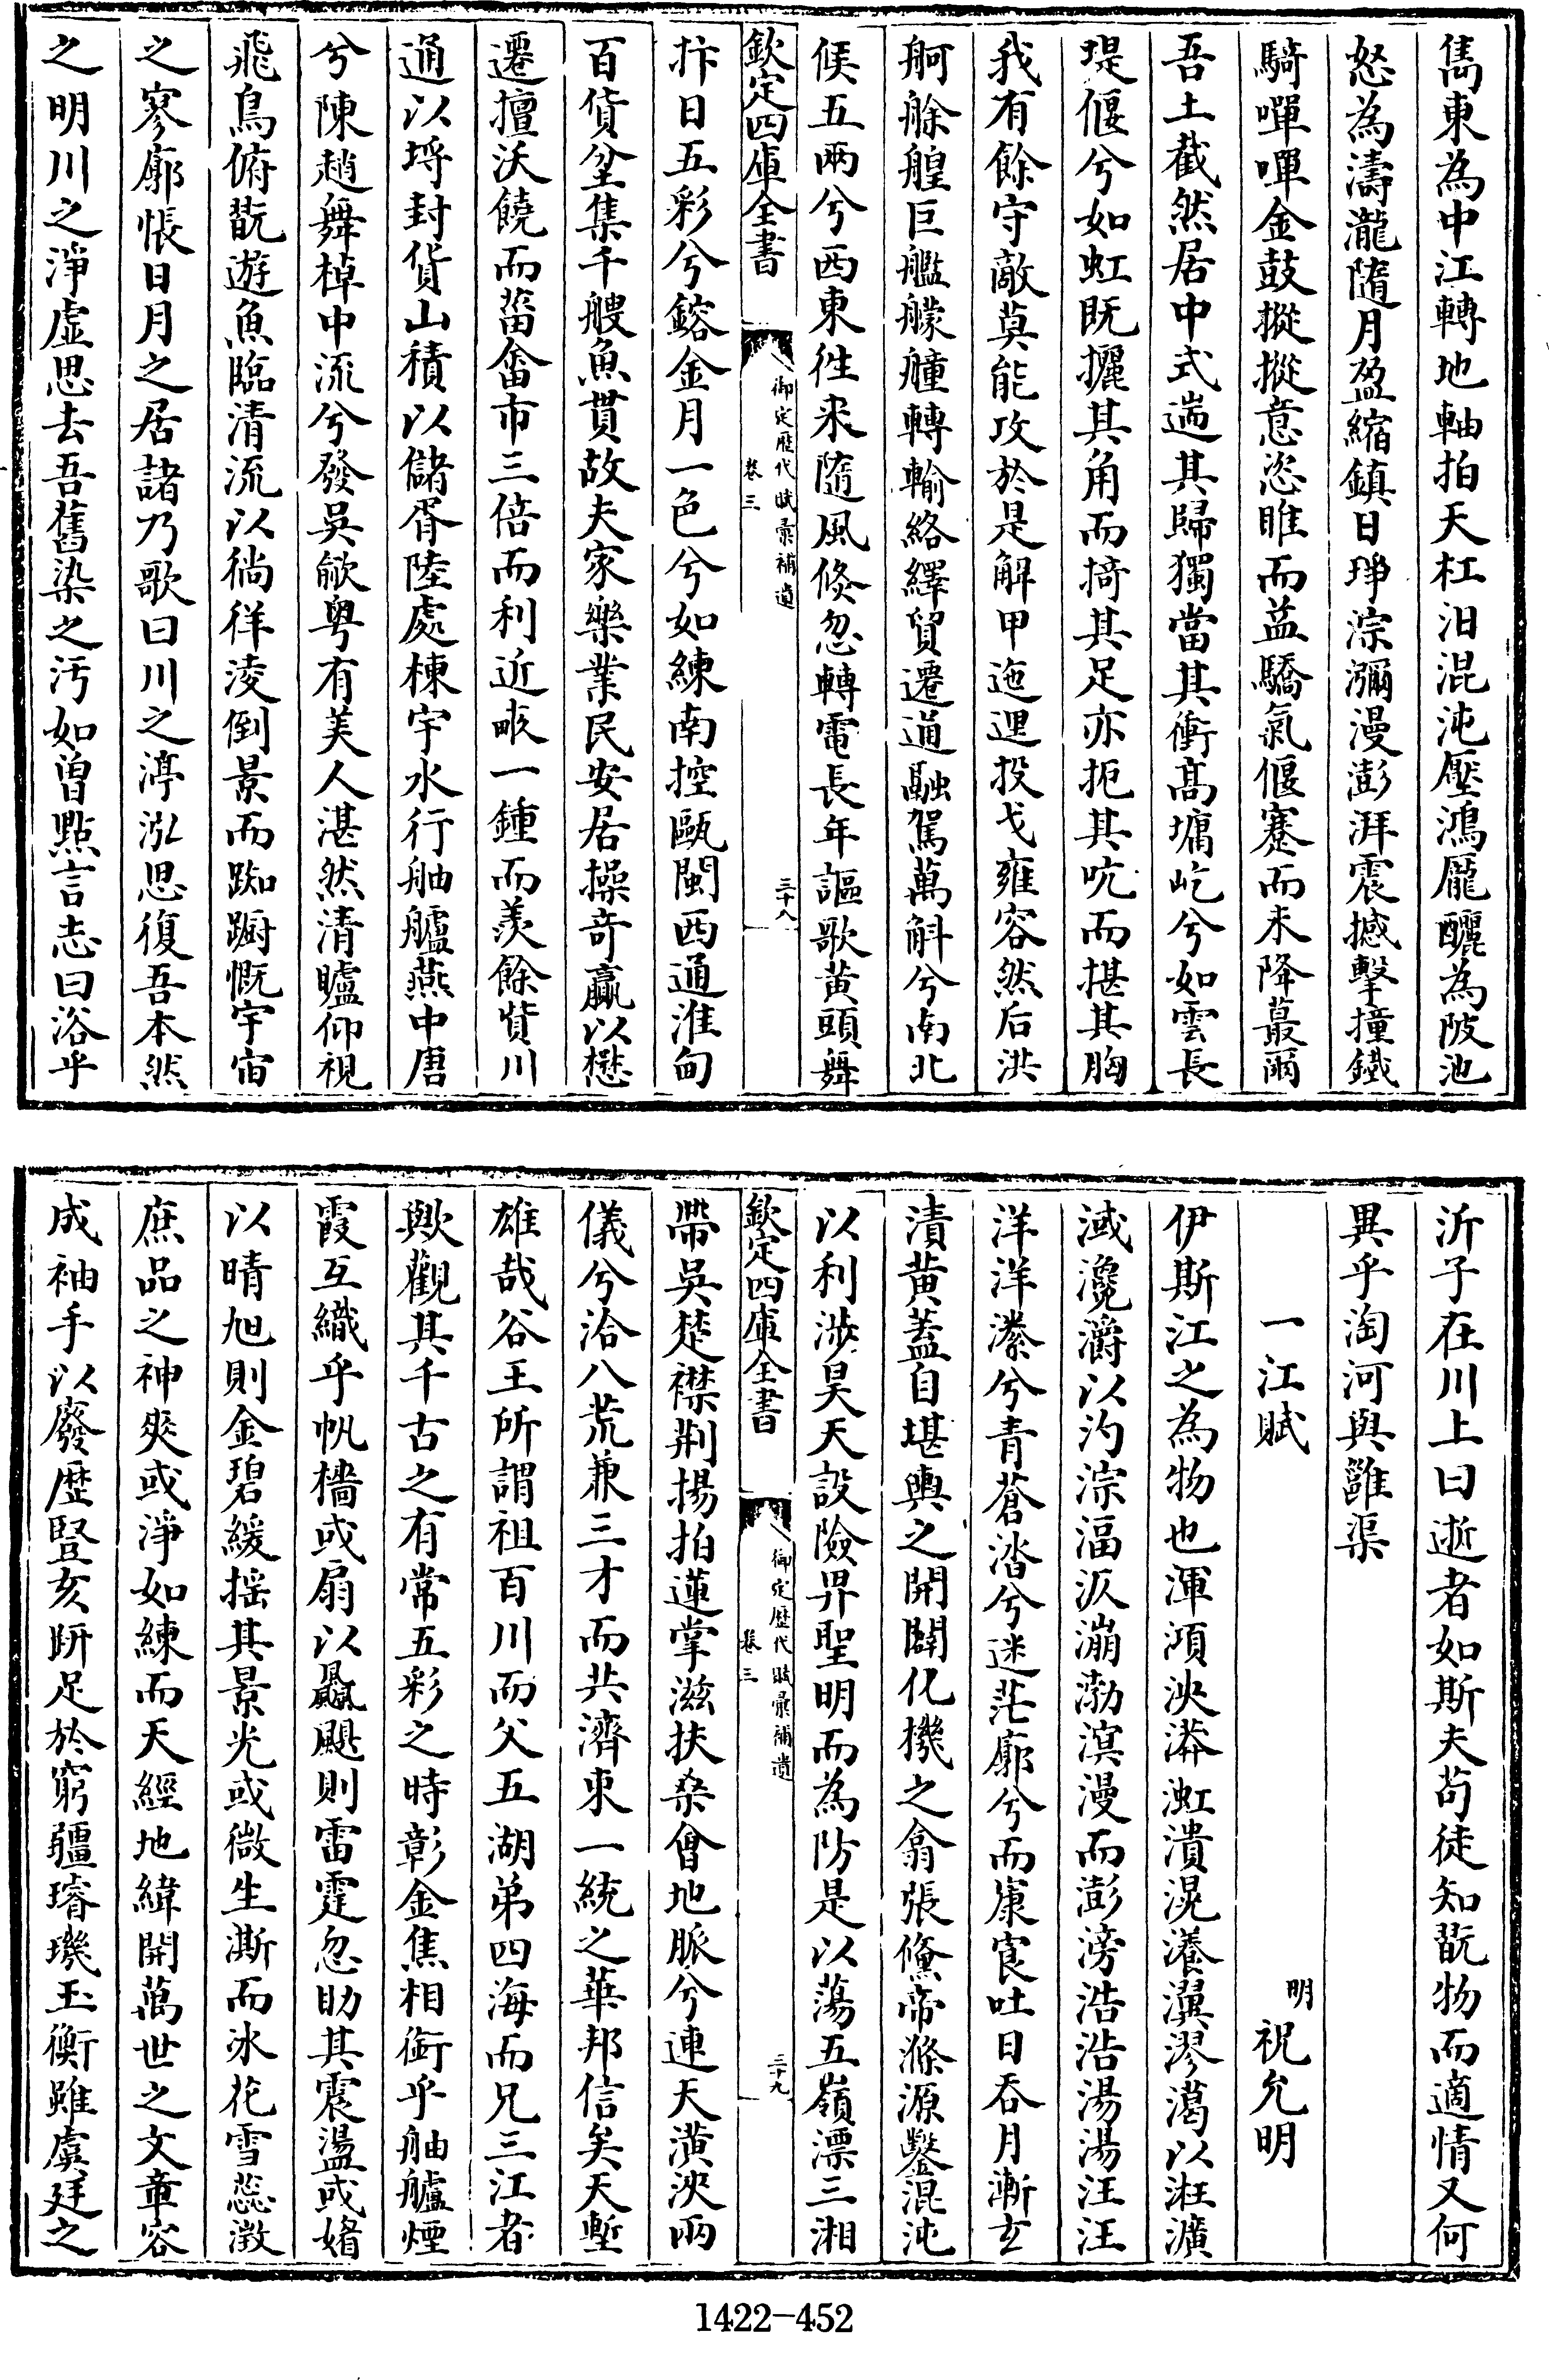 雋東為中江轉地軸拍天杠汨混沌壓鴻厖釃為陂池
怒為濤瀧隨月盈縮鎮日琤淙瀰漫澎湃震撼擊撞鐵
騎嘽嘽金鼓摐摐意恣睢而益驕氣偃蹇而未降蕞爾
吾土截然居中式遄其歸獨當其衝髙墉屹兮如雲長
堤偃兮如虹既攦其角而掎其足亦扼其吭而揕其胸
我有餘守敵莫能攻於是解甲迤邐投戈雍容然后洪
舸艅艎巨艦艨艟轉輸絡繹貿遷通融駕萬斛兮南北
候五兩兮西東徃来隨風倐忽轉電長年謳歌黄頭舞
欽定四庫全書
御定歴代賦彚補遺
卷三
三十八
抃日五彩兮鎔金月一色兮如練南控甌閩西通淮甸
百貨坌集千艘魚貫故夫家樂業民安居操奇贏以懋
遷擅沃饒而菑畬市三倍而利近畝一鍾而羨餘貲川
通以埓封貨山積以儲胥陸處棟宇水行舳艫燕中唐
兮陳趙舞棹中流兮發吳歈粤有美人湛然清矑仰視
飛鳥俯翫遊魚臨清流以徜徉淩倒景而踟躕慨宇宙
之寥廓悵日月之居諸乃歌曰川之渟泓思復吾本然
之明川之淨虛思去吾舊染之汚如曽點言志曰浴乎
沂子在川上曰逝者如斯夫苟徒知翫物而適情又何
異乎淘河與雝渠
一江賦
明
祝允明
伊斯江之為物也渾澒泱漭洶潰滉瀁瀷漻濊以洭瀇
淢瀺灂以汋淙湢汳漰渤溟漫而澎滂浩浩湯湯汪汪
洋洋瀠兮青蒼涾兮迷茫廓兮而康㝗吐日吞月漸玄
漬黄蓋自堪輿之開闢化機之翕張儵帝滌源鑿混沌
以利涉昊天設險畀聖明而為防是以蕩五嶺漂三湘
欽定四庫全書
御定歴代賦彚補遺
卷三
三十九
帶吳楚襟荆揚拍蓮掌滋扶桑㑹地脈兮連天潢泱兩
儀兮洽八荒兼三才而共濟東一統之華邦信矣天塹
雄哉谷王所謂祖百川而父五湖弟四海而兄三江者
歟觀其千古之有常五彩之時彰金焦相銜乎舳艫煙
霞互織乎帆檣或扇以飈颶則雷霆忽助其震盪或媚
以晴旭則金碧緩揺其景光或微生澌而氷花雪蕊澂
庶品之神爽或淨如練而天經地緯開萬世之文章容
成袖手以廢歴竪亥趼足於窮疆璿璣玉衡雖虞廷之
1422-452